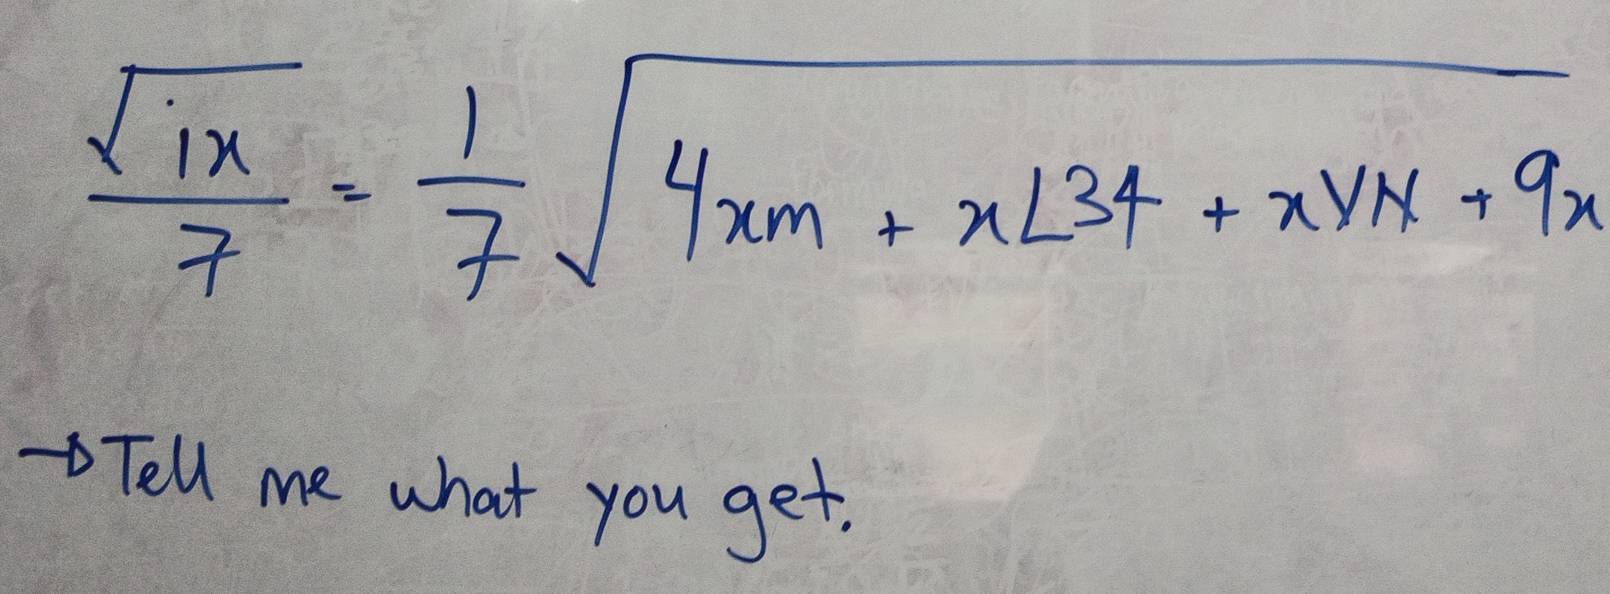 √ix/7 = 1/7 √4xm + xL34 + xVN + 9x
→ Tell me what you get.